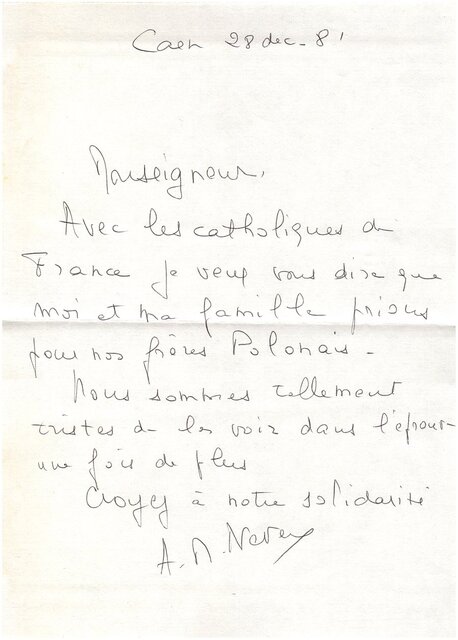 Caen 28 dec. 81
Monseigneur,
Avec les catholiques de
France je veux vous dire que
moi et ma famille prions
pour nos frères Polonais -
Nous sommes tellement
tristes de les voir dans l'épreuve
une fois de plus
Croyez à notre solidarité
A. M.